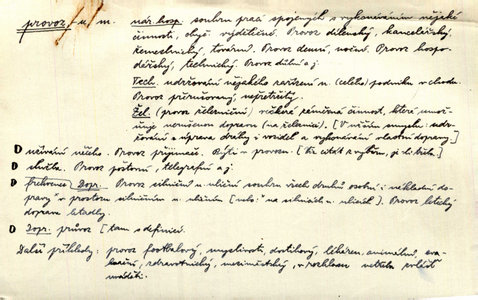 provoz, -u m. nár. hosp. souhrn prací spojených s vykonáváním nějaké
činnosti, obyč. výdělečné. Provoz dílenský, kancelářský,
řemeslnický, tovární. Provoz denní, noční. Provoz hospo-
dářský, technický. Provoz důlní a j.
Tech. udržování nějakého zařízení n. (celého) podniku v chodu.
Provoz přerušovaný, nepřetržitý.
Žel. (provoz železniční) veškerá záměrná činnost, která umož-
ňuje nerušenou dopravu (na železnici). [V užším smyslu: udr-
žování a úprava dráhy a vozidel a vykonávání vlastní dopravy.]
D užívání něčeho. Provoz přijímače. Býti v provozu. [
D služba. Provoz poštovní, telegrafní a j.
D frekvence Dopr. Provoz silniční n. uliční souhrn všech druhů osobní i nákladní do-
pravy v prostoru silničním n. uličním [nebo: na silnicích n. ulicích]. Provoz letecký
doprava letadly.
D Dopr. průvoz [tam s definicí.
Další příklady: provoz footbalový, myslivosti, dostihový, lékáren, animální,
zdravotnický, meziměstský, v rozhlasu
uváděti.